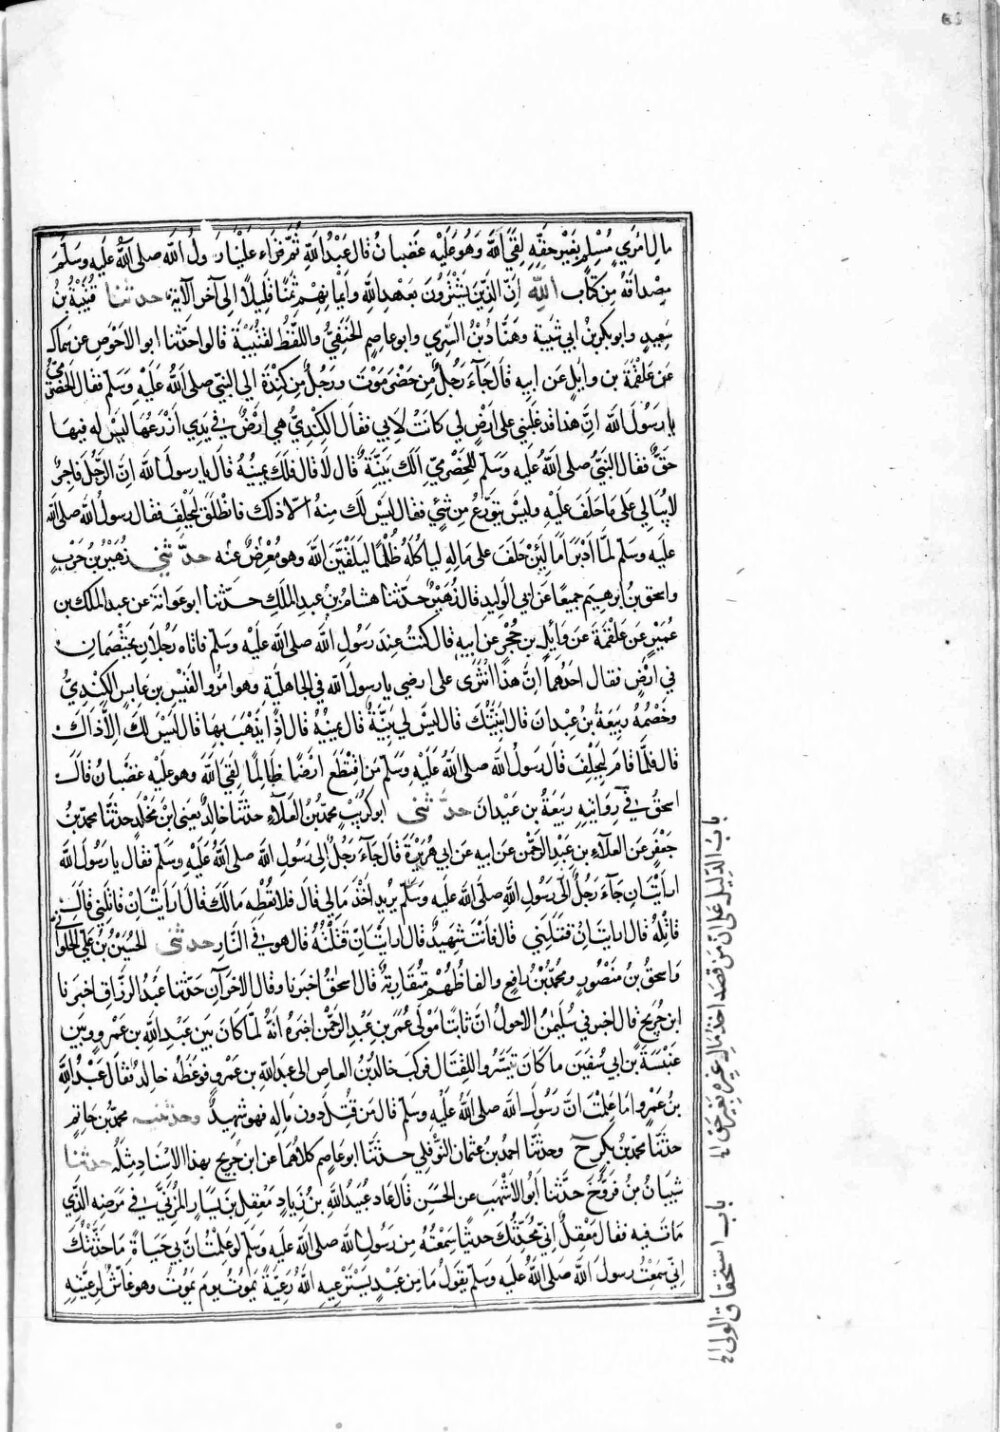 مال امرئ مسلم بغير حقه لقي الله وهو عليه غضبان قال عبد الله ثم قرأ علينا رسول الله صلى الله عليه وسلم
مصداقه من كتاب الله ان الذين يشترون بعهد الله وايمانهم ثمنا قليلا الى آخر الآية حدثنا قتيبة بن
سعيد وابو بكر بن ابي شيبة وهناد بن السري وابو عاصم الحنفي واللفظ لقتيبة قالوا حدثنا ابو الاحوص عن سماك
عن علقمة بن وايل عن ابيه قال جآء رجل من حضرموت ورجل من كندة الى النبي صلى الله عليه وسلم فقال الحضرمي
يا رسول الله ان هذا قد غلبني على ارض لي كانت لابي فقال الكندي هي ارض في يدي ازرعها ليس له فيها
حق فقال النبي صلى الله عليه وسلم للحضرمي الك بينة قال لا قال فلك يمينه قال يا رسول الله ان الرجل فاجر
لا يبالي على ما حلف عليه وليس يتورع من شيء فقال ليس لك منه الا ذلك فانطلق ليحلف فقال رسول الله صلى الله
عليه وسلم لما ادبر اما لئن حلف على ماله لياكله ظلما ليلقين الله وهو معرض عنه حدثني زهير بن حرب
واسحق بن ابرهيم جميعا عن ابي الوليد قال زهير حدثنا هشام بن عبد الملك حدثنا ابو عوانة عن عبد الملك بن
عمير عن علقمة عن وايل بن حجر عن ابيه قال كنت عند رسول الله صلى الله عليه وسلم فاتاه رجلان يختصمان
في ارض فقال احدهما ان هذا انتزى على ارضي يا رسول الله في الجاهلية وهو امرؤ القيس بن عابس الكندي
وخصمه ربيعة بن عبدان قال بينتك قال ليس لي بينة قال يمينه قال اذا يذهب بها قال ليس لك الا ذاك
قال فلما قام ليحلف قال رسول الله صلى الله عليه وسلم من اقتطع ارضا ظالما لقي الله وهو عليه غضبان قال
اسحق في روايته ربيعة بن عيدان حدثني ابو كريب محمد بن العلآء حدثنا خالد يعني ابن مخلد حدثنا محمد بن
جعفر عن العلآء بن عبد الرحمن عن ابيه عن ابي هريرة قال جآء رجل الى رسول الله صلى الله عليه وسلم فقال يا رسول الله
ارايت ان جآء رجل الى رسول الله صلى الله عليه وسلم يريد اخذ مالي قال فلا تعطه مالك قال ارايت ان قاتلني قال
قاتله قال ارايت ان قتلني قال فانت شهيد قال ارايت ان قتلته قال هو في النار حدثني الحسين بن علي الحلواني
واسحق بن منصور ومحمد بن رافع والفاظهم متقاربة قال اسحق اخبرنا وقال الآخرآن حدثنا عبد الرزاق اخبرنا
ابن جريج قال اخبرني سليمن الاحول ان ثابتا مولى عمر بن عبد الرحمن اخبره انه لما كان بين عبد الله بن عمرو وبين
عنبسة بن ابي سفين ما كان تيسروا للقتال فركب خالد بن العاص الى عبد الله بن عمرو فوعظه خالد فقال عبد الله
بن عمرو اما علمت ان رسول الله صلى الله عليه وسلم قال من قتل دون ماله فهو شهيد وحدثنيه محمد بن حاتم
حدثنا محمد بن بكر ح وحدثنا احمد بن عثمان النوفلي حدثنا ابو عاصم كلاهما عن ابن جريج بهذا الاسناد مثله حدثنا
شيبان بن فروخ حدثنا ابو الاشهب عن الحسن قال عاد عبيد الله بن زياد معقل بن يسار المزني في مرضه الذي
مات فيه فقال معقل اني محدثك حديثا سمعته من رسول الله صلى الله عليه وسلم لو علمت ان بي حياة ما حدثتك
اني سمعت رسول الله صلى الله عليه وسلم يقول ما من عبد يسترعيه الله رعية يموت يوم يموت وهو غاش لرعيته
باب الدليل على ان من قصد اخذ مال غيره بغير حق
باب استحقاق الوالي